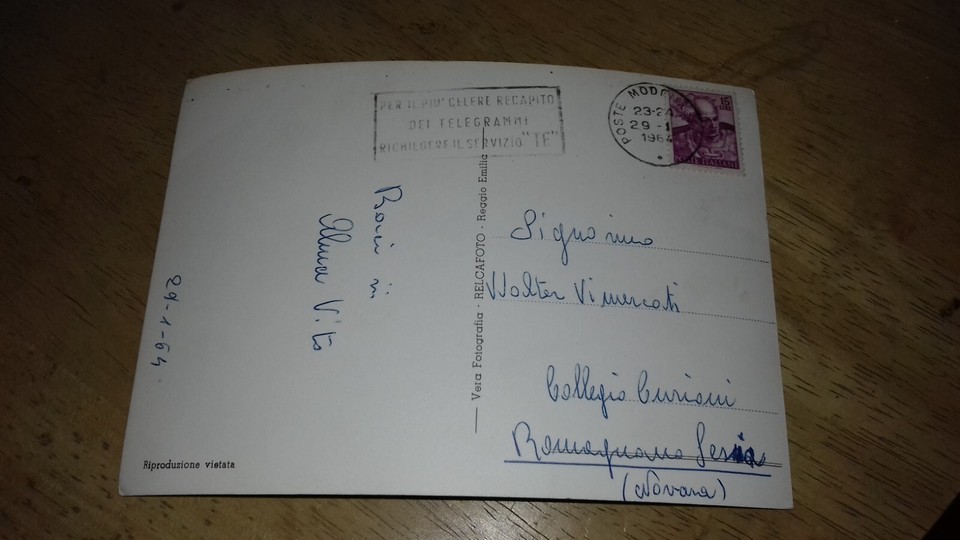 PER IL PIU' CELERE RECAPITO
DEI TELEGRAMMI
RICHIEDERE IL SERVIZIO "TE"
POSTE MODE
23-24
29-1
1964
15
POSTE ITALIANE
Baci
Vito
29-1-64
Vera Fotografia - RELCAFOTO - Reggio Emilia
Signorino
Walter Vimercati
Collegio Curioni
Romagnano Sesia
(Novara)
Riproduzione vietata